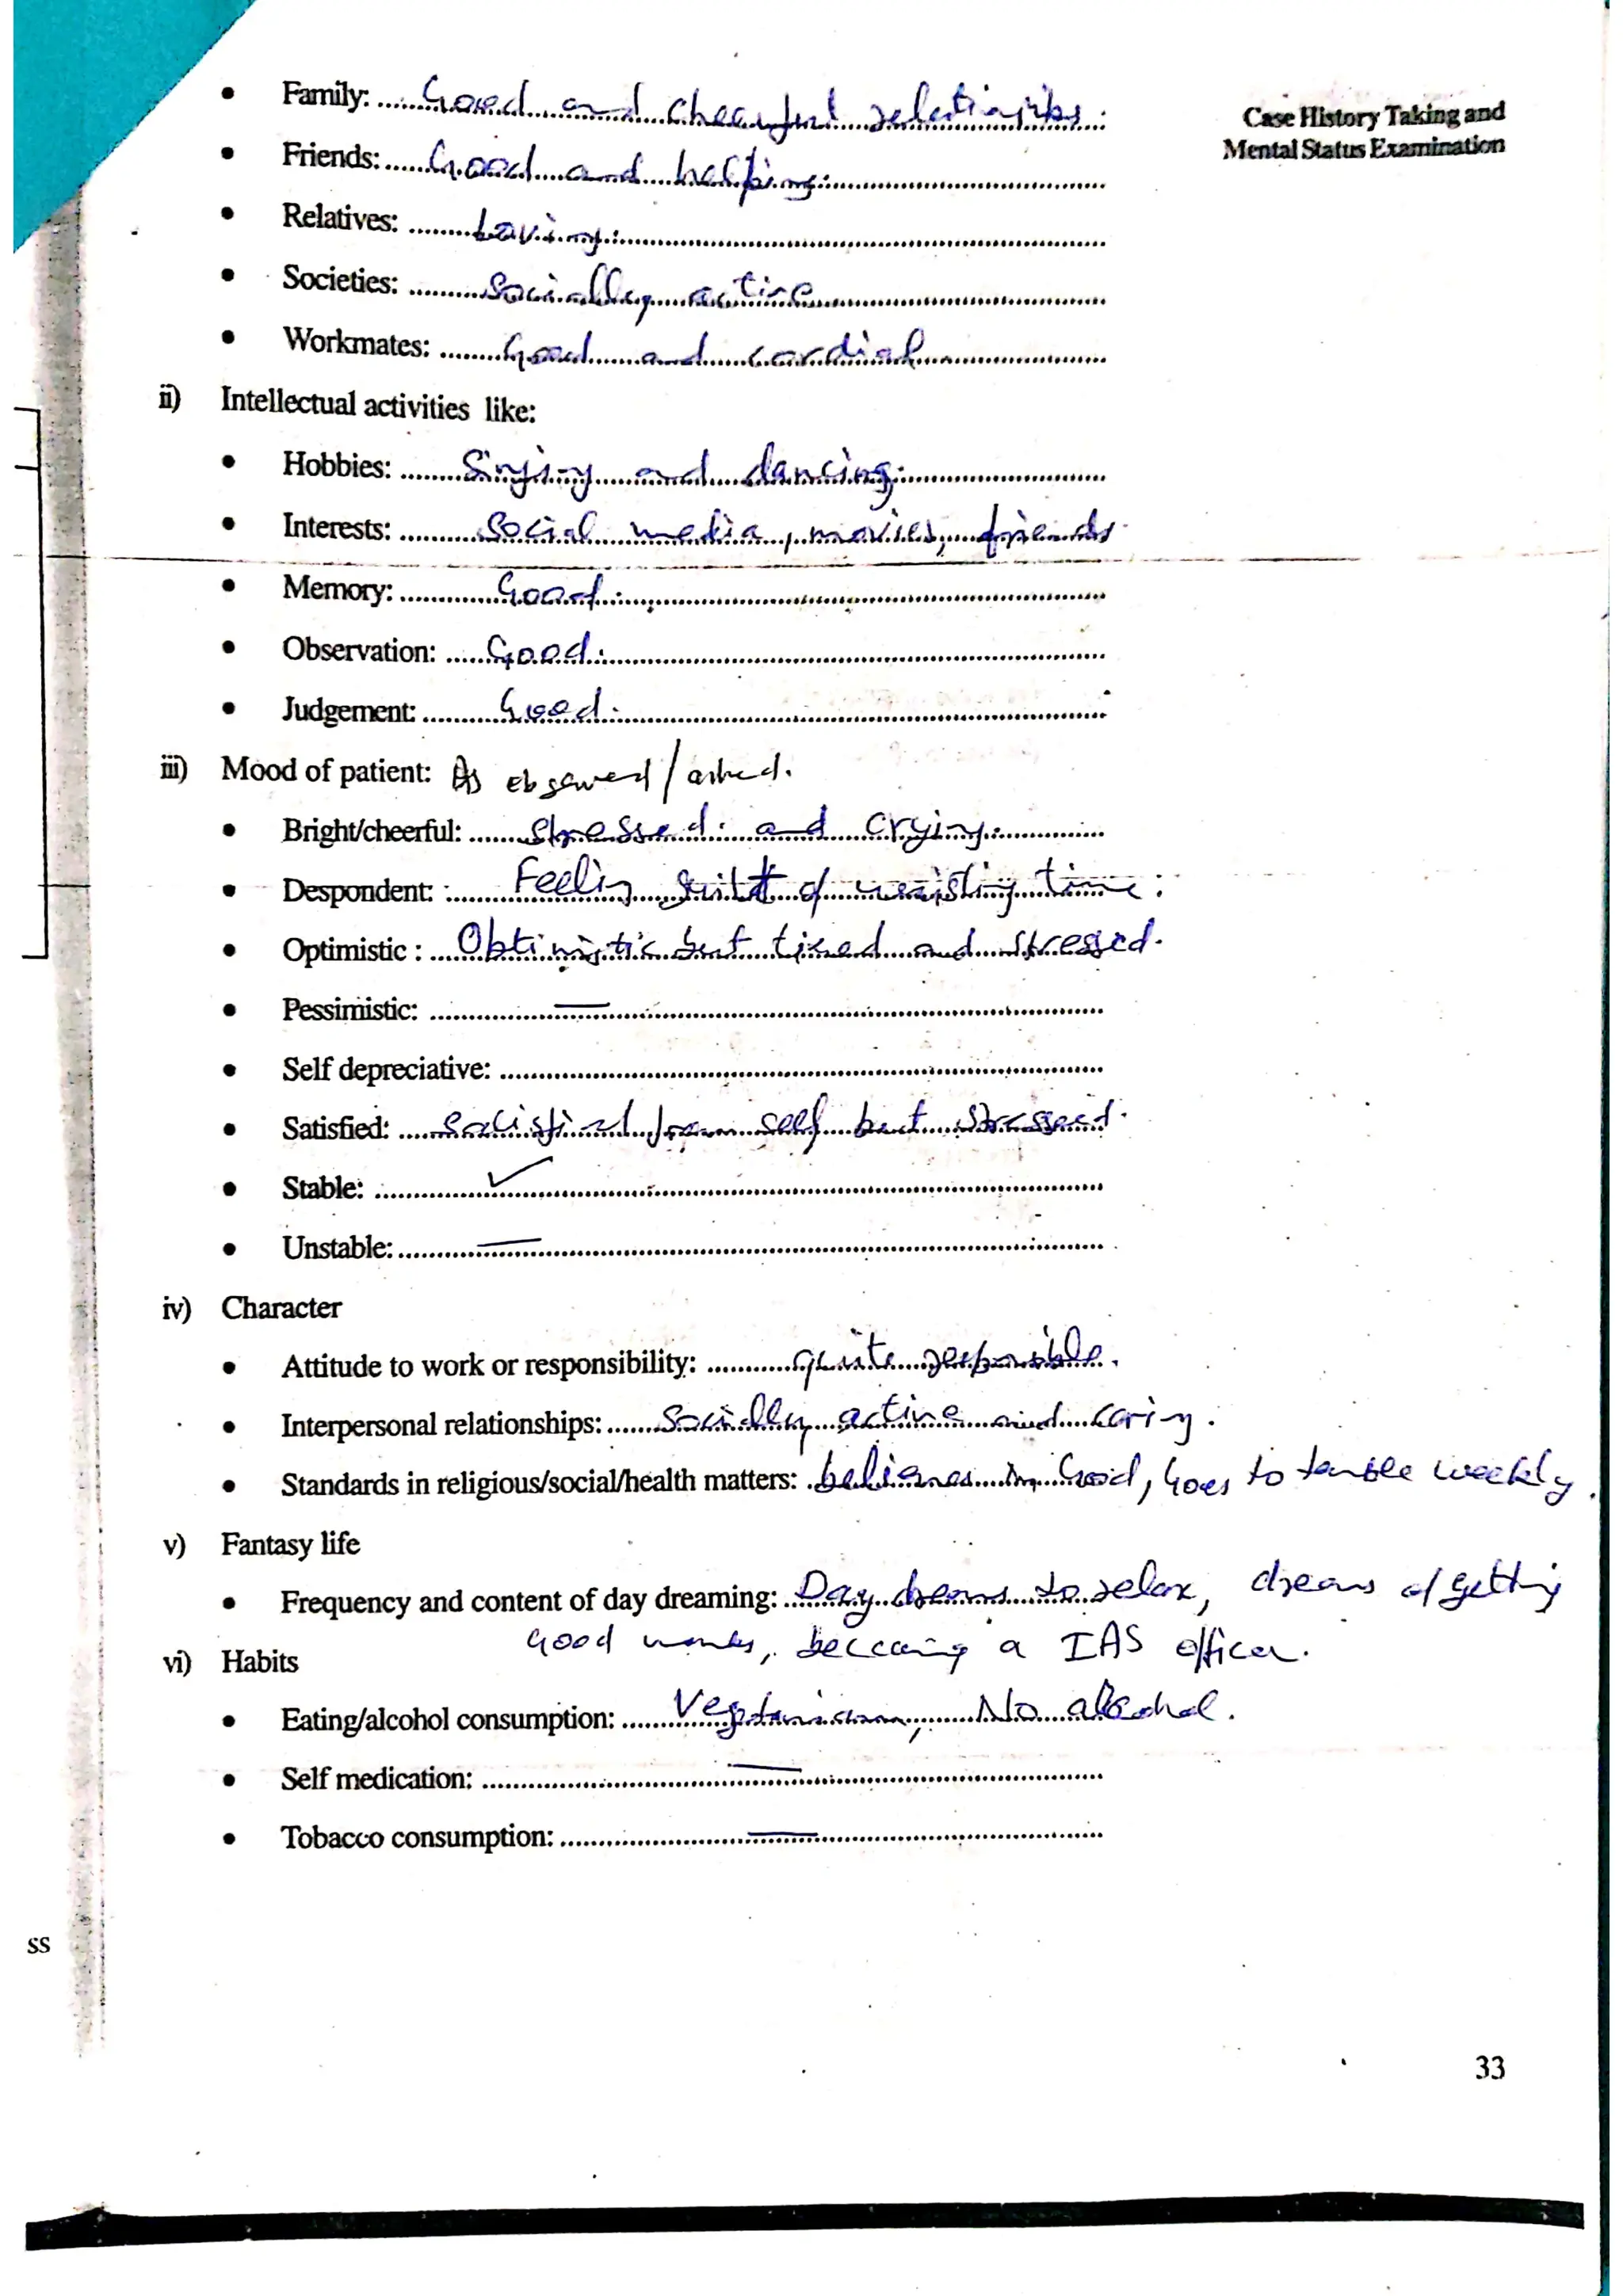 Case History Taking and
Mental Status Examination
• Family: Good and cheerful relationships.
• Friends: Good and helping.
• Relatives: Loving.
• Societies: Socially active
• Workmates: Good and cordial
ii) Intellectual activities like:
• Hobbies: Singing and dancing.
• Interests: Social media, movies, friends
• Memory: Good.
• Observation: Good.
• Judgement: Good.
iii) Mood of patient: As observed/asked.
• Bright/cheerful: Stressed. and crying.
• Despondent: Feeling guilt of waisting time.
• Optimistic : Obtimistic but tired and stressed.
• Pessimistic: —
• Self depreciative:
• Satisfied: Satisfied from self but stressed.
• Stable: ✓
• Unstable: —
iv) Character
• Attitude to work or responsibility: quite responsible.
• Interpersonal relationships: Socially active and caring.
• Standards in religious/social/health matters: believes in God, Goes to temple weekly.
v) Fantasy life
• Frequency and content of day dreaming: Day dreams to relax, dreams of getting
Good marks, becoming a IAS officer.
vi) Habits
• Eating/alcohol consumption: Vegetarian, No alcohol.
• Self medication: —
• Tobacco consumption: —
ss
33